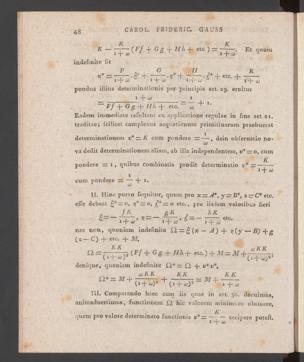 48 CAROL. FRIDERIC. GAUSS
K − K/(1+ω) (Ff + Gg + Hh + etc.) = K/(1+ω). Et quum
indefinite sit
x* = F/(1+ω) · ξ* + G/(1+ω) · η* + H/(1+ω) · ζ* + etc. + K/(1+ω)
pondus illius determinationis per principia art. 29. eruitur
= (1+ω)/(Ff + Gg + Hh + etc.) = 1/ω + 1.
Eadem immediate resultant ex applicatione regulae in fine art. 21.
traditae; scilicet complexus aequationum primitivarum praebuerat
determinationem x* = K cum pondere = 1/ω, dein observatio no-
va dedit determinationem aliam, ab illa independentem, x* = 0, cum
pondere = 1, quibus combinatis prodit determinatio x* = K/(1+ω)
cum pondere = 1/ω + 1.
II. Hinc porro sequitur, quum pro x = A*, y = B*, z = C* etc.
esse debeat ξ* = 0, η* = 0, ζ* = 0 etc., pro iisdem valoribus fieri
ξ = − fK/(1+ω), η = − gK/(1+ω), ζ = − hK/(1+ω) etc.
nec non, quoniam indefinite Ω = ξ(x − A) + η(y − B) + ζ
(z − C) + etc. + M,
Ω = KK/(1+ω)² (Ff + Gg + Hh + etc.) + M = M + ωKK/(1+ω)²
denique, quoniam indefinite Ω* = Ω + v*v*,
Ω* = M + ωKK/(1+ω)² + KK/(1+ω)² = M + KK/(1+ω)
III. Comparando haec cum iis quae in art. 30. docuimus,
animadvertimus, functionem Ω hic valorem minimum obtinere,
quem pro valore determinato functionis v* = K/(1+ω) accipere potest.